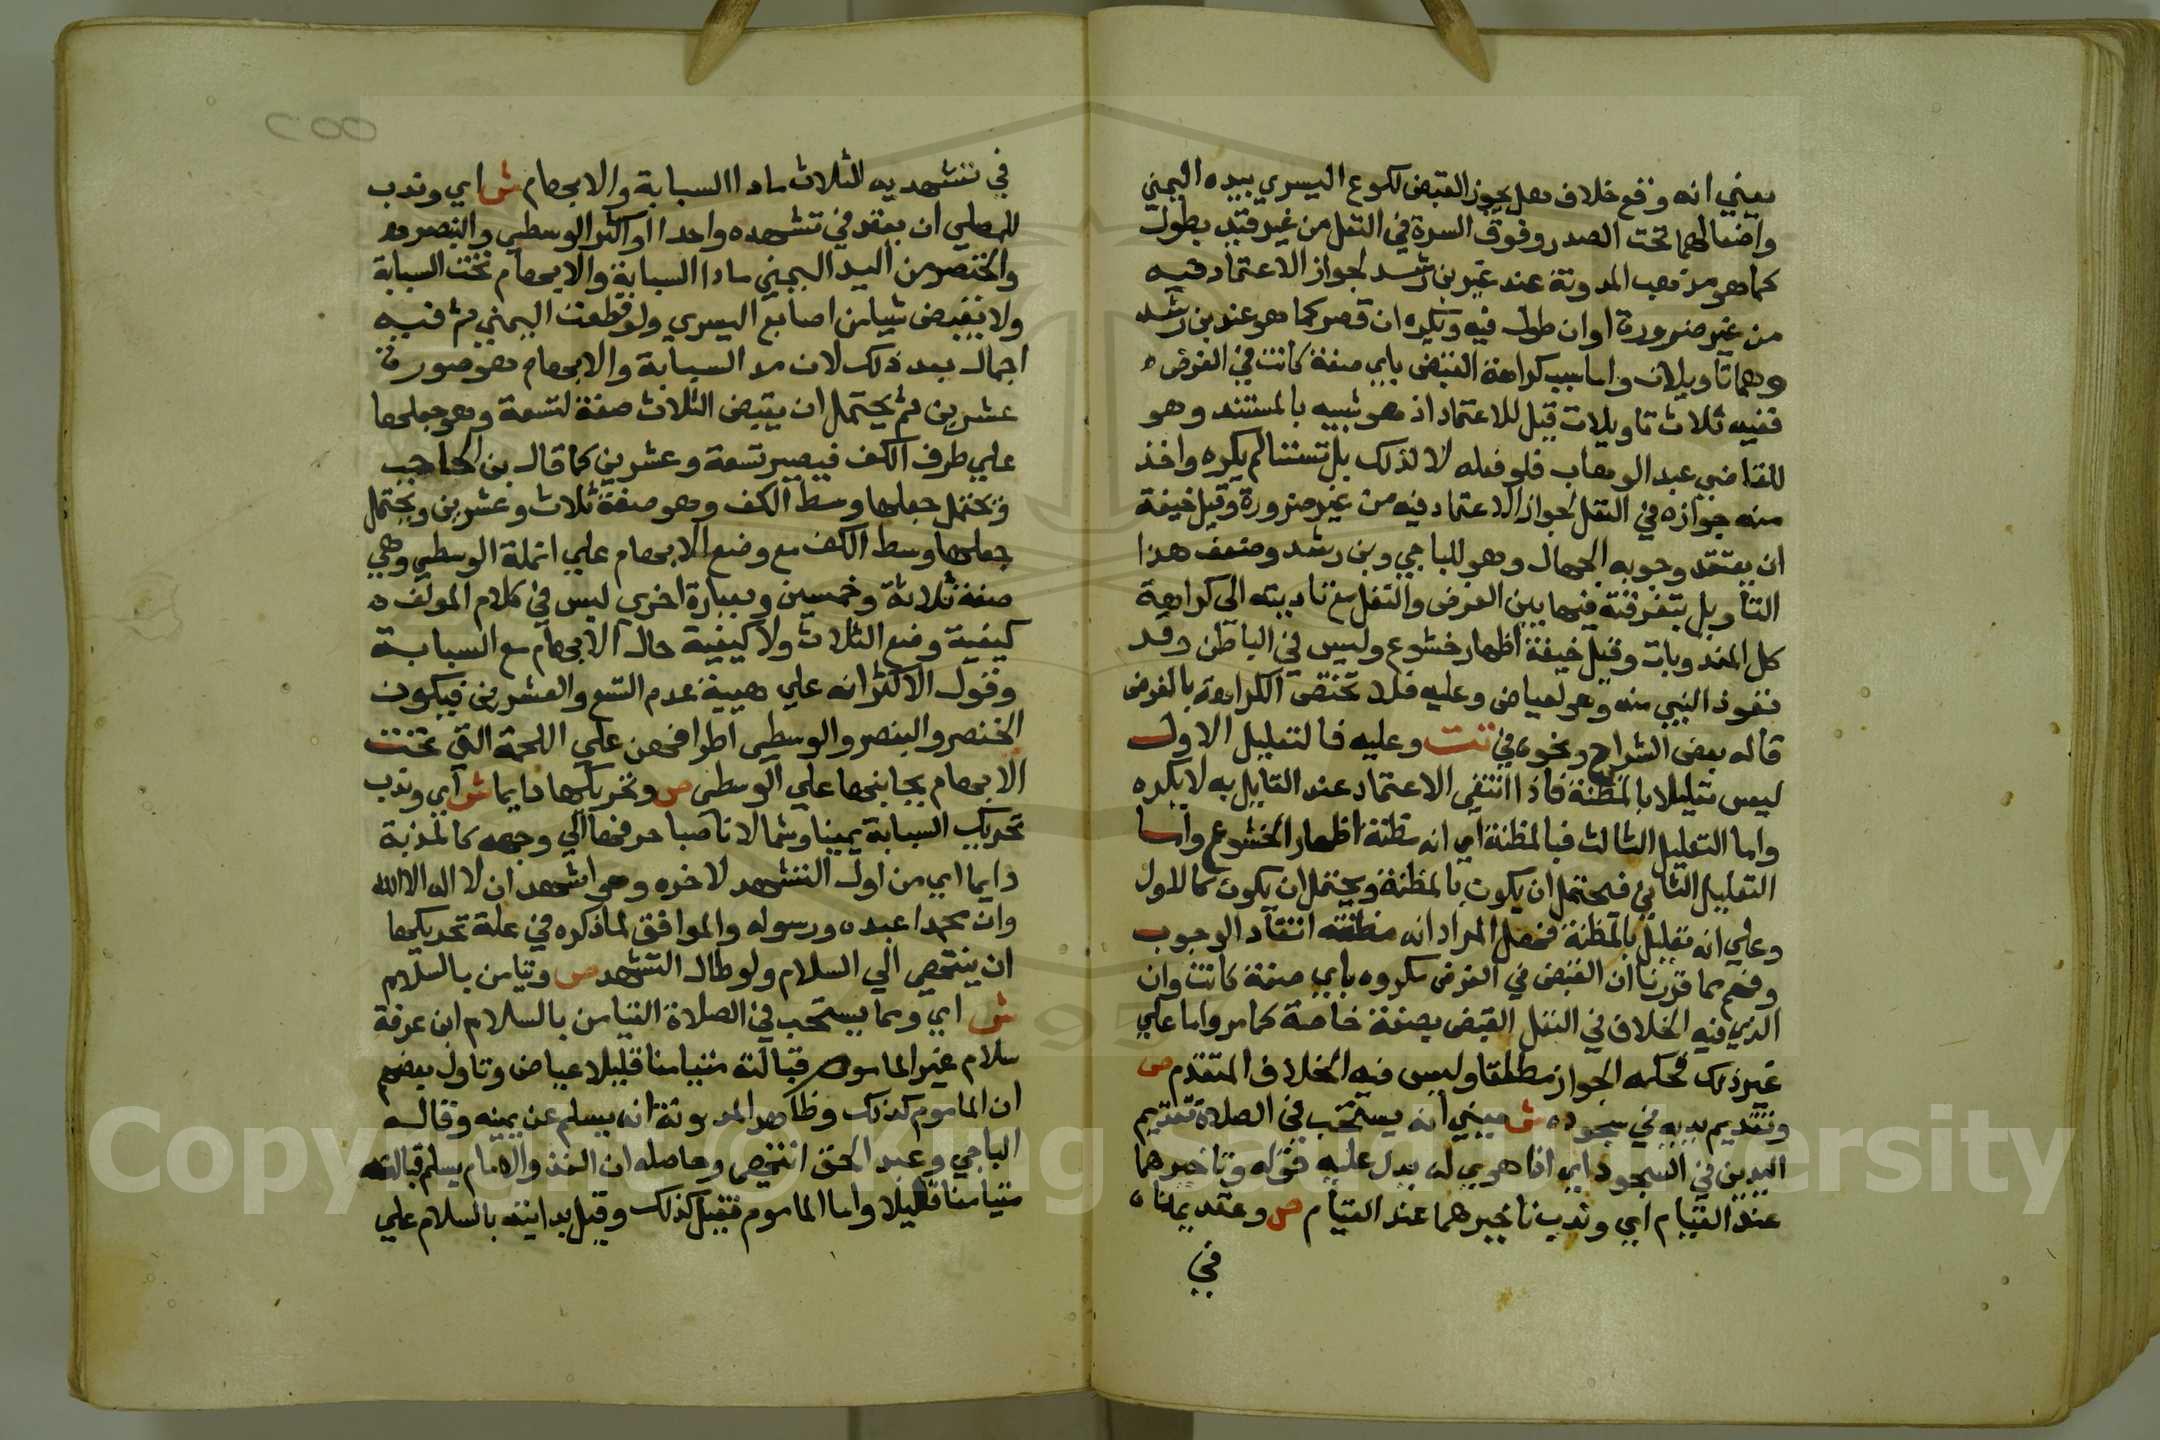 يعني انه وقع خلاف هل يجوز القبض لكوع اليسري بيده اليمني
واضعا لهما تحت الصدر وفوق السرة في النفل من غير قيد بطول
كما هو مذهب المدونة عند غير بن رشد لجواز الاعتماد فيه
من غير ضرورة او ان طول فيه ويكره ان قصر كما هو عند بن رشد
وهما تاويلان واما سبب كراهة القبض باي صفة كانت في الفرض
ففيه ثلاث تاويلات قيل للاعتماد اذ هو شبيه بالمستند وهو
للقاضي عبد الوهاب فلو فعله لا لذلك بل تسننا لم يكره واخذ
منه جوازه في النفل لجواز الاعتماد فيه من غير ضرورة وقيل خيفة
ان يعتقد وجوبه الجهال وهو للباجي وبن رشد وضعف هذا
التأويل بتفرقته فيها بين الفرض والنفل مع تاديته الي كراهة
كل المندوبات وقيل خيفة اظهار خشوع وليس في الباطن وقد
تعوذ النبي منه وهو لعياض وعليه فلا تختص الكراهة بالفرض
قاله بعض الشراح ونحوه في تت وعليه فالتعليل الاول
ليس تعليلا بالمظنة فاذا انتفي الاعتماد عند القايل به لا يكره
واما التعليل الثالث فبالمظنة اي انه مظنة اظهار الخشوع واما
التعليل الثاني فيحتمل ان يكون بالمظنة ويحتمل ان يكون كالاول
وعلي انه تعليل بالمظنة فهل المراد انه مظنة اعتقاد الوجوب
وفهم مما قررنا ان القبض في الفرض مكروه باي صفة كانت وان
الذي فيه الخلاف في النفل القبض بصفة خاصة كما مر واما علي
غير ذلك فحكمه الجواز مطلقا وليس فيه الخلاف المتقدم ص
وتقديم يديه في سجوده ش يعني انه يستحب في الصلاة تقديم
اليدين في السجود اي اذا هوي له يدل عليه قوله وتاخيرهما
عند القيام اي وندب تاخيرهما عند القيام ص وعقد يمناه
في
في تشهديه الثلاث مادا السبابة والابهام ش اي وندب
للمصلي ان يعقد في تشهده واحدا او اكثر الوسطي والبنصر
والخنصر من اليد اليمني مادا السبابة والابهام تحت السبابة
ولا يقبض شيا من اصابع اليسري ولو قطعت اليمني ثم فيه
اجمال بعد ذلك لان مد السبابة والابهام هو صورة
عشرين ثم يحتمل ان يقبض الثلاث صفة لتسعة وهو جعلها
علي طرف الكف فيصير تسعة وعشرين كما قال بن الحاجب
ويحتمل جعلها وسط الكف وهو صفة ثلاث وعشرين ويحتمل
جعلها وسط الكف مع وضع الابهام علي انملة الوسطي وهي
صفة ثلاثة وخمسين وبعبارة اخري ليس في كلام المولف
كيفية وضع الثلاث ولا كيفية حال الابهام مع السبابة
وقول الاكثر انه علي هيية عدم التسع والعشرين فيكون
الخنصر والبنصر والوسطي اطرافهن علي اللحمة التي تحت
الابهام بجانبها علي الوسطي ص وتحريكها دايما ش اي وندب
تحريك السبابة يمينا وشمالا ناصبا حرفها الي وجهه كالمذبة
دايما اي من اول التشهد لاخره وهو اشهد ان لا اله الا الله
وان محمدا عبده ورسوله والموافق لما ذكره في علة تحريكها
ان ينتهي الي السلام ولو طال التشهد ص وتيامن بالسلام
ش اي ومما يستحب في الصلاة التيامن بالسلام ابن عرفة
سلام غير الماموم قبالته متيامنا قليلا عياض وتاول بعضهم
ان الماموم كذلك وظاهر المدونة انه يسلم عن يمينه وقاله
الباجي وعبد الحق انتهي وحاصله ان الفذ والامام يسلم قبالته
متيامنا قليلا واما الماموم فقيل كذلك وقيل بدايته بالسلام علي
Copyright © King Saud University